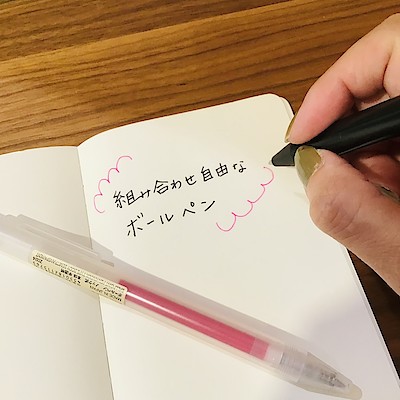 組み合わせ自由な
ボールペン